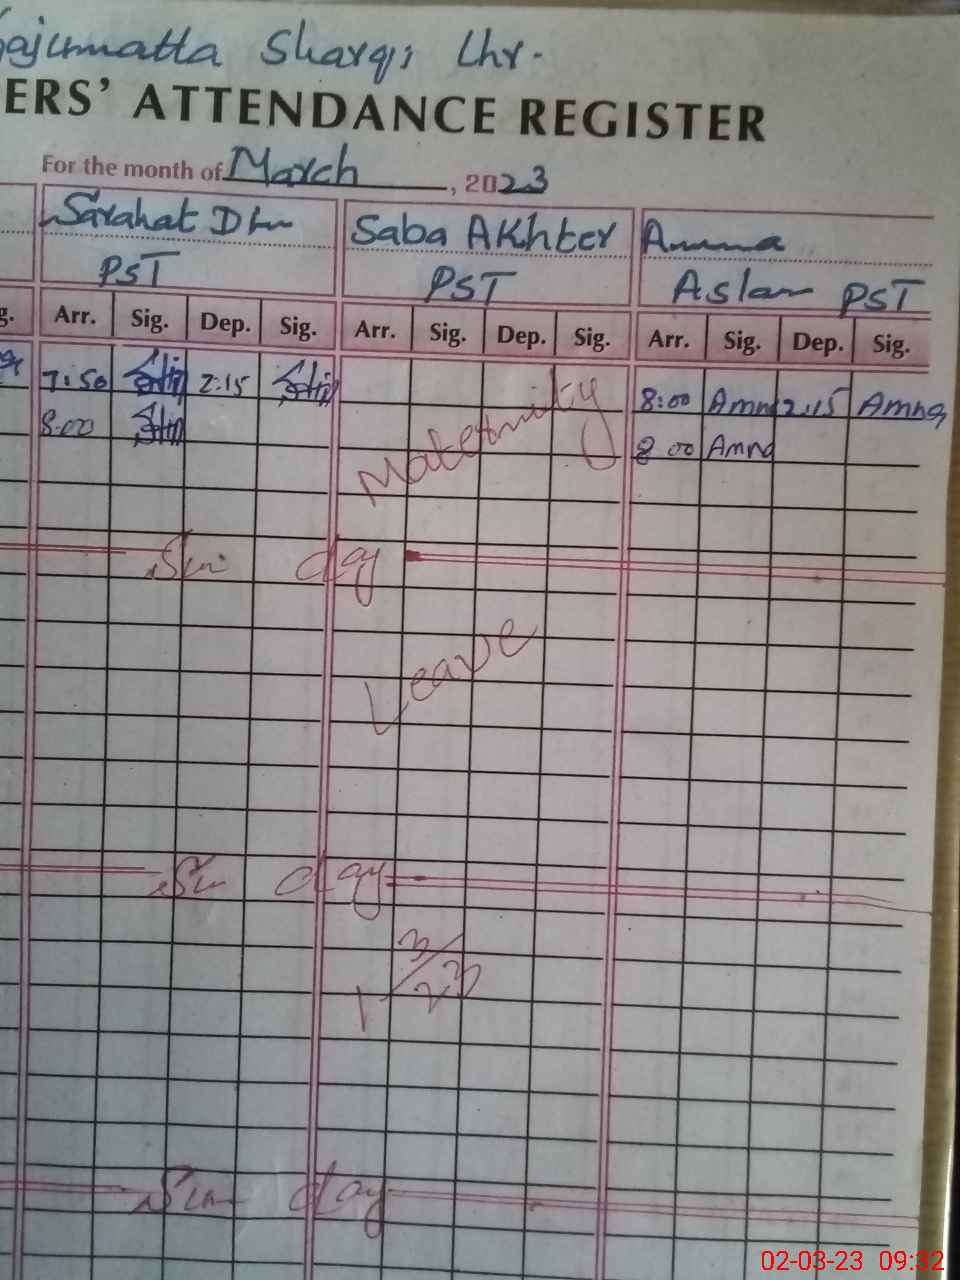 Gajjumatta Sharqi Lhr.
ERS' ATTENDANCE REGISTER
For the month of March, 2023
Saba AKhter Amna
PST PST Aslam PST
g. Arr. Sig. Dep. Sig. Arr. Sig. Dep. Sig. Arr. Sig. Dep. Sig.
7:50 2:15 8:00 Amna 2:15 Amna
8:00 8:00 Amna
Maternity
Sun day
Leave
Sun day
1/3/23
Sun day
02-03-23 09:32